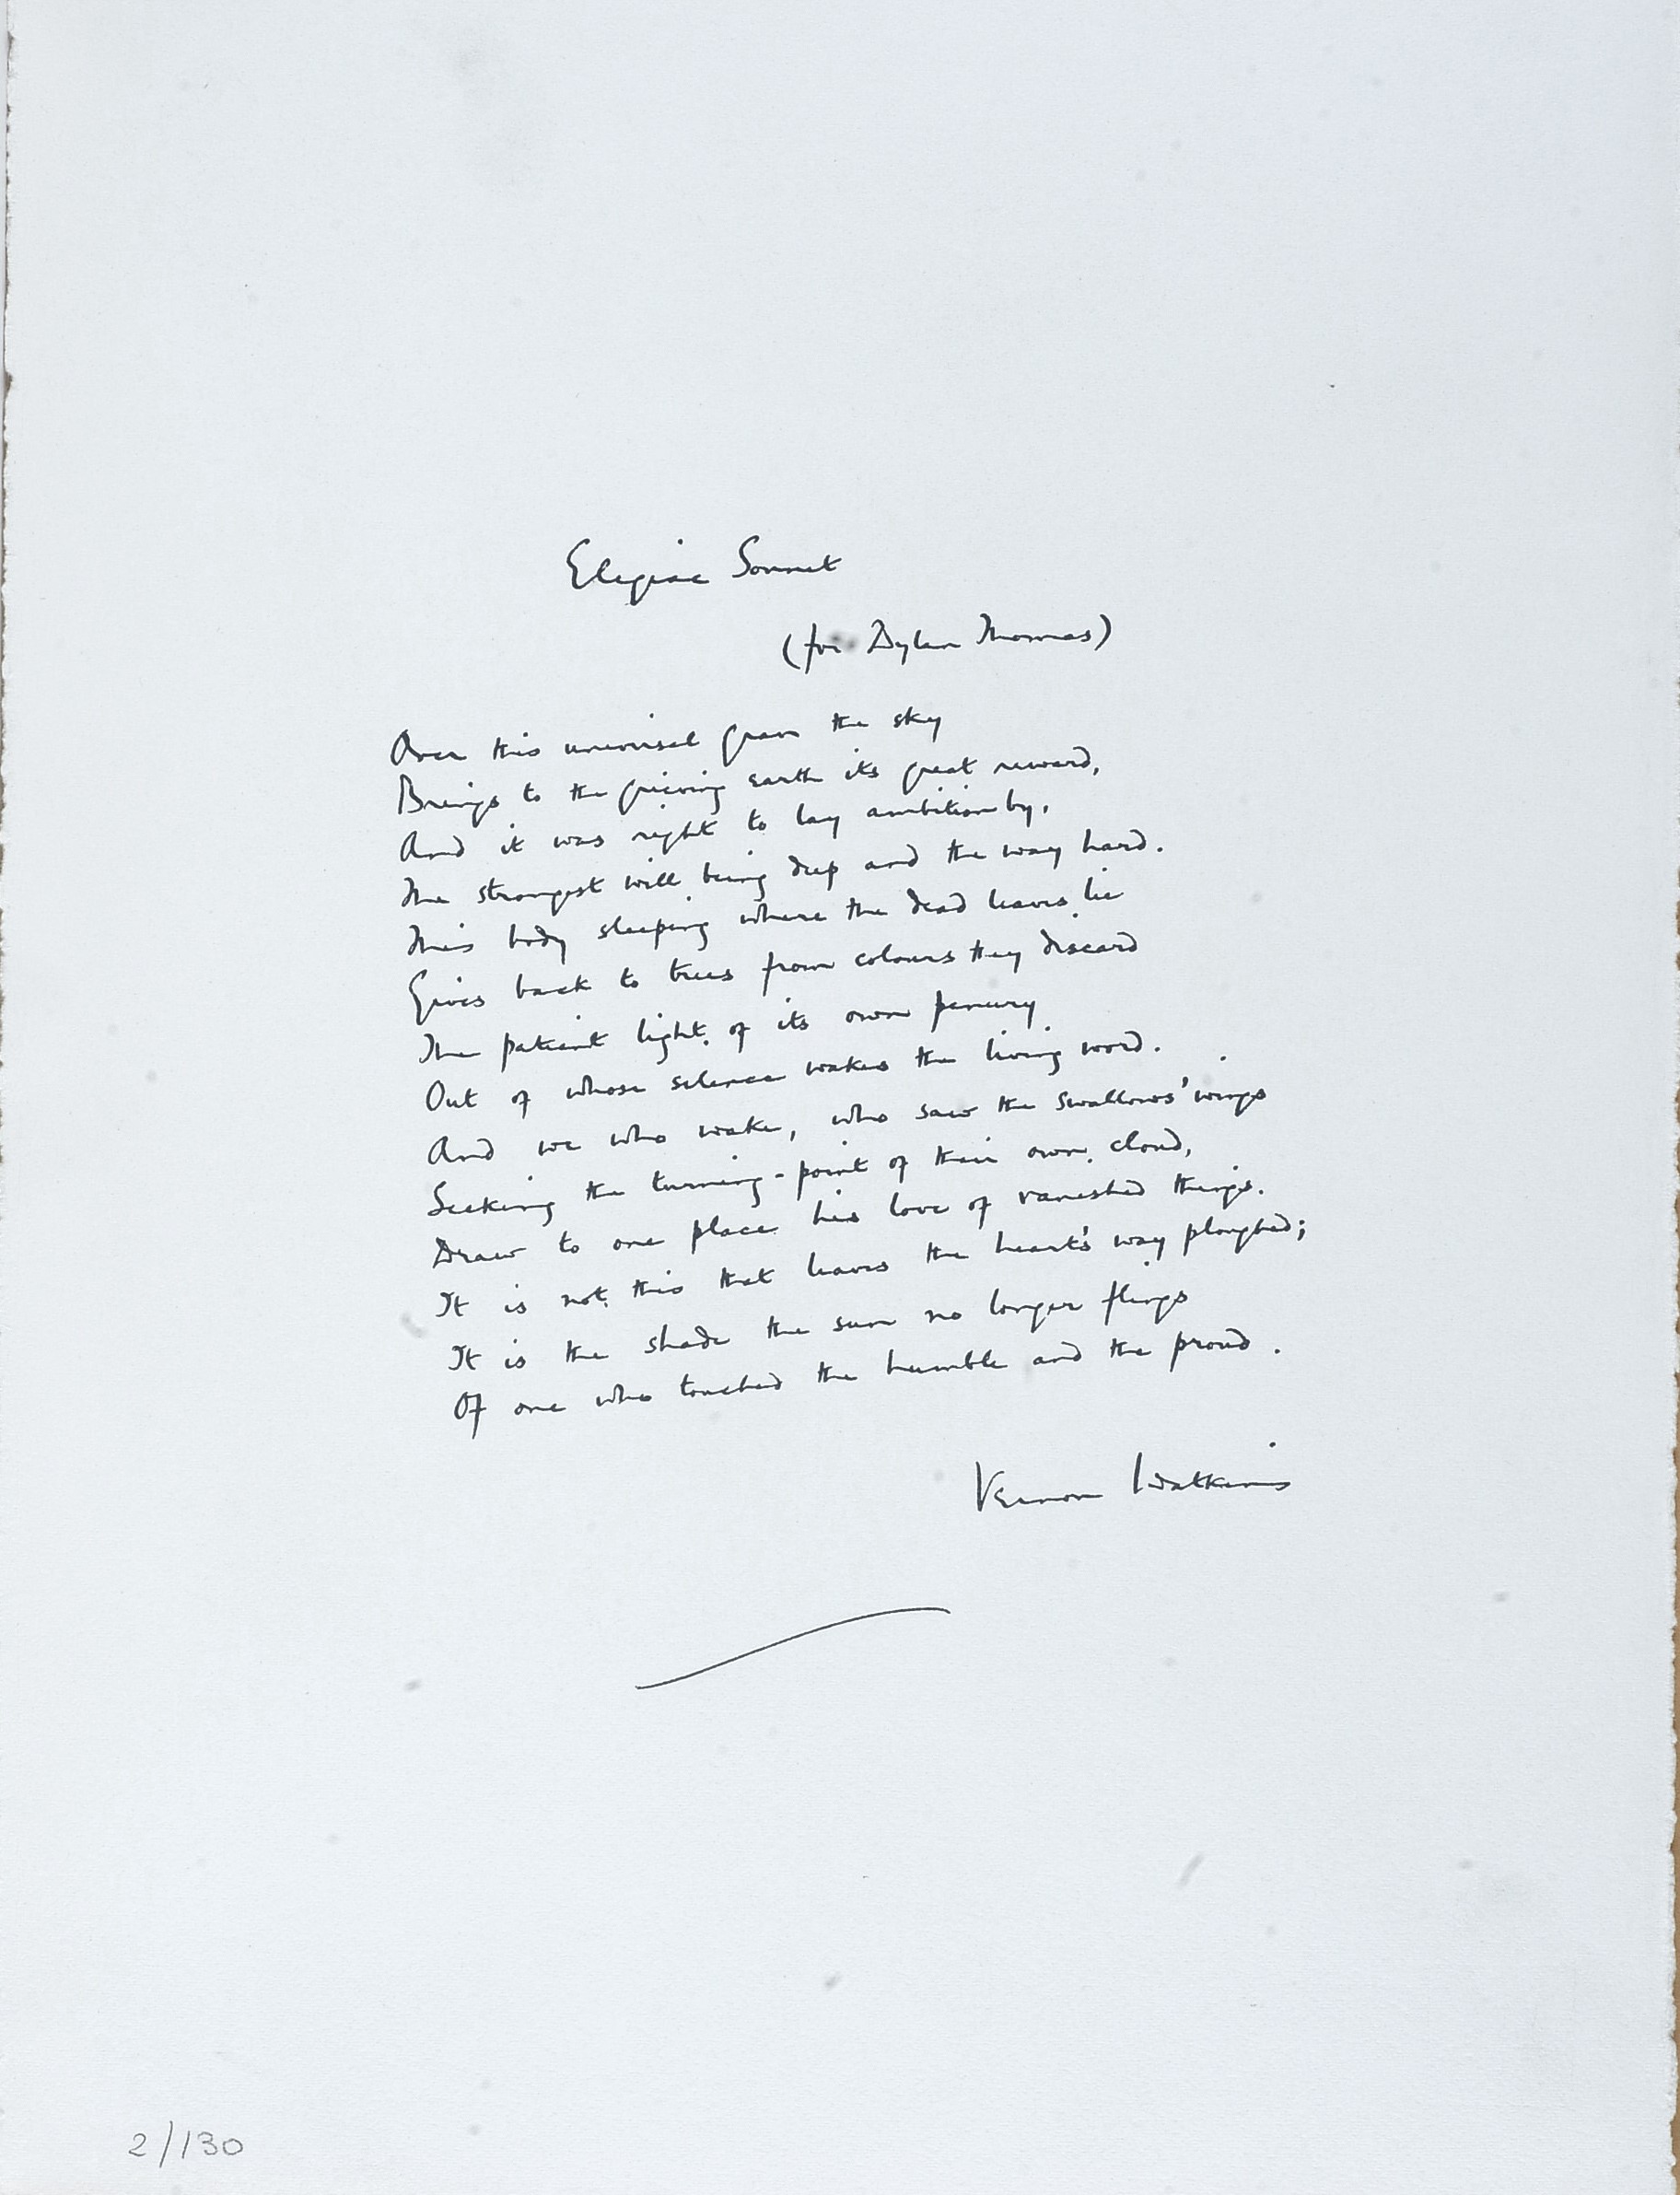 Elegiac Sonnet
(for Dylan Thomas)
Over this universal grave the sky
Brings to the grieving earth its great reward,
And it was right to lay ambition by,
The strongest will being deep and the way hard.
This body sleeping where the dead leaves lie
Gives back to trees from colours they discard
The patient light of its own penury
Out of whose silence wakes the living word.
And we who wake, who saw the swallows' wings
Seeking the turning-point of their own cloud,
Draw to one place his love of vanished things.
It is not this that leaves the heart's way ploughed;
It is the shade the sun no longer flings
Of one who touched the humble and the proud.
Vernon Watkins
2/130